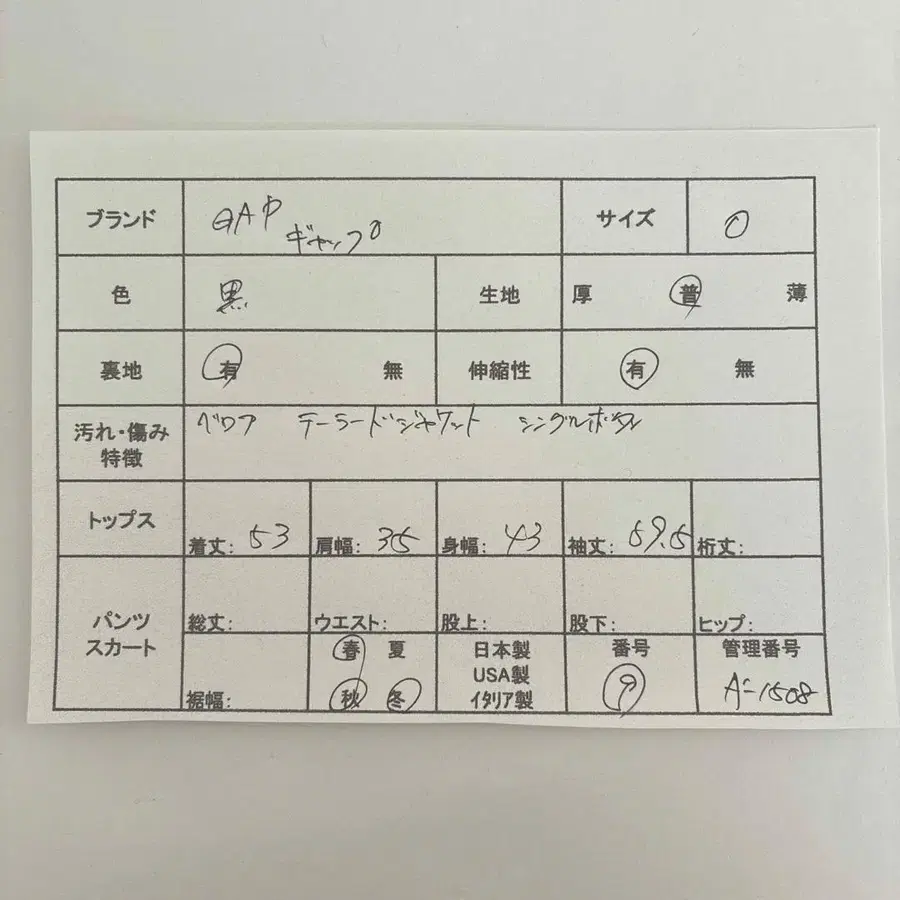 ブランド GAP ギャップ サイズ 0
色 黒 生地 厚 普 薄
裏地 有 無 伸縮性 有 無
汚れ・傷み 特徴 ベロア テーラードジャケット シングルボタン
トップス 着丈: 53 肩幅: 35 身幅: 43 袖丈: 59.5 裄丈:
パンツ スカート 総丈: ウエスト: 股上: 股下: ヒップ:
裾幅: 春 夏 秋 冬 日本製 USA製 イタリア製 番号 9 管理番号 A-1508